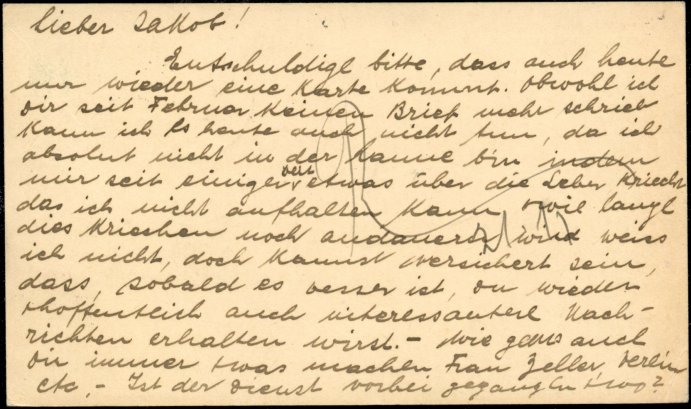 lieber Jakob!
Entschuldige bitte, dass auch heute
nur wieder eine Karte kommt. Obwohl ich
dir seit Februar keinen Brief mehr schrieb
kann ich es heute auch nicht tun, da ich
absolut nicht in der laune bin indem
mir seit einiger Zeit etwas über die Leber kriecht
das ich nicht aufhalten kann wie lange
dies kriechen noch andauern wird weiss
ich nicht, doch kannst versichert sein,
dass, sobald es besser ist, du wieder
hoffentlich auch interessantere Nach-
richten erhalten wirst. - Wie gehts auch
dir immer & was machen Frau Zeller, Verein
etc. - Ist der Dienst vorbei gegangen & wo?